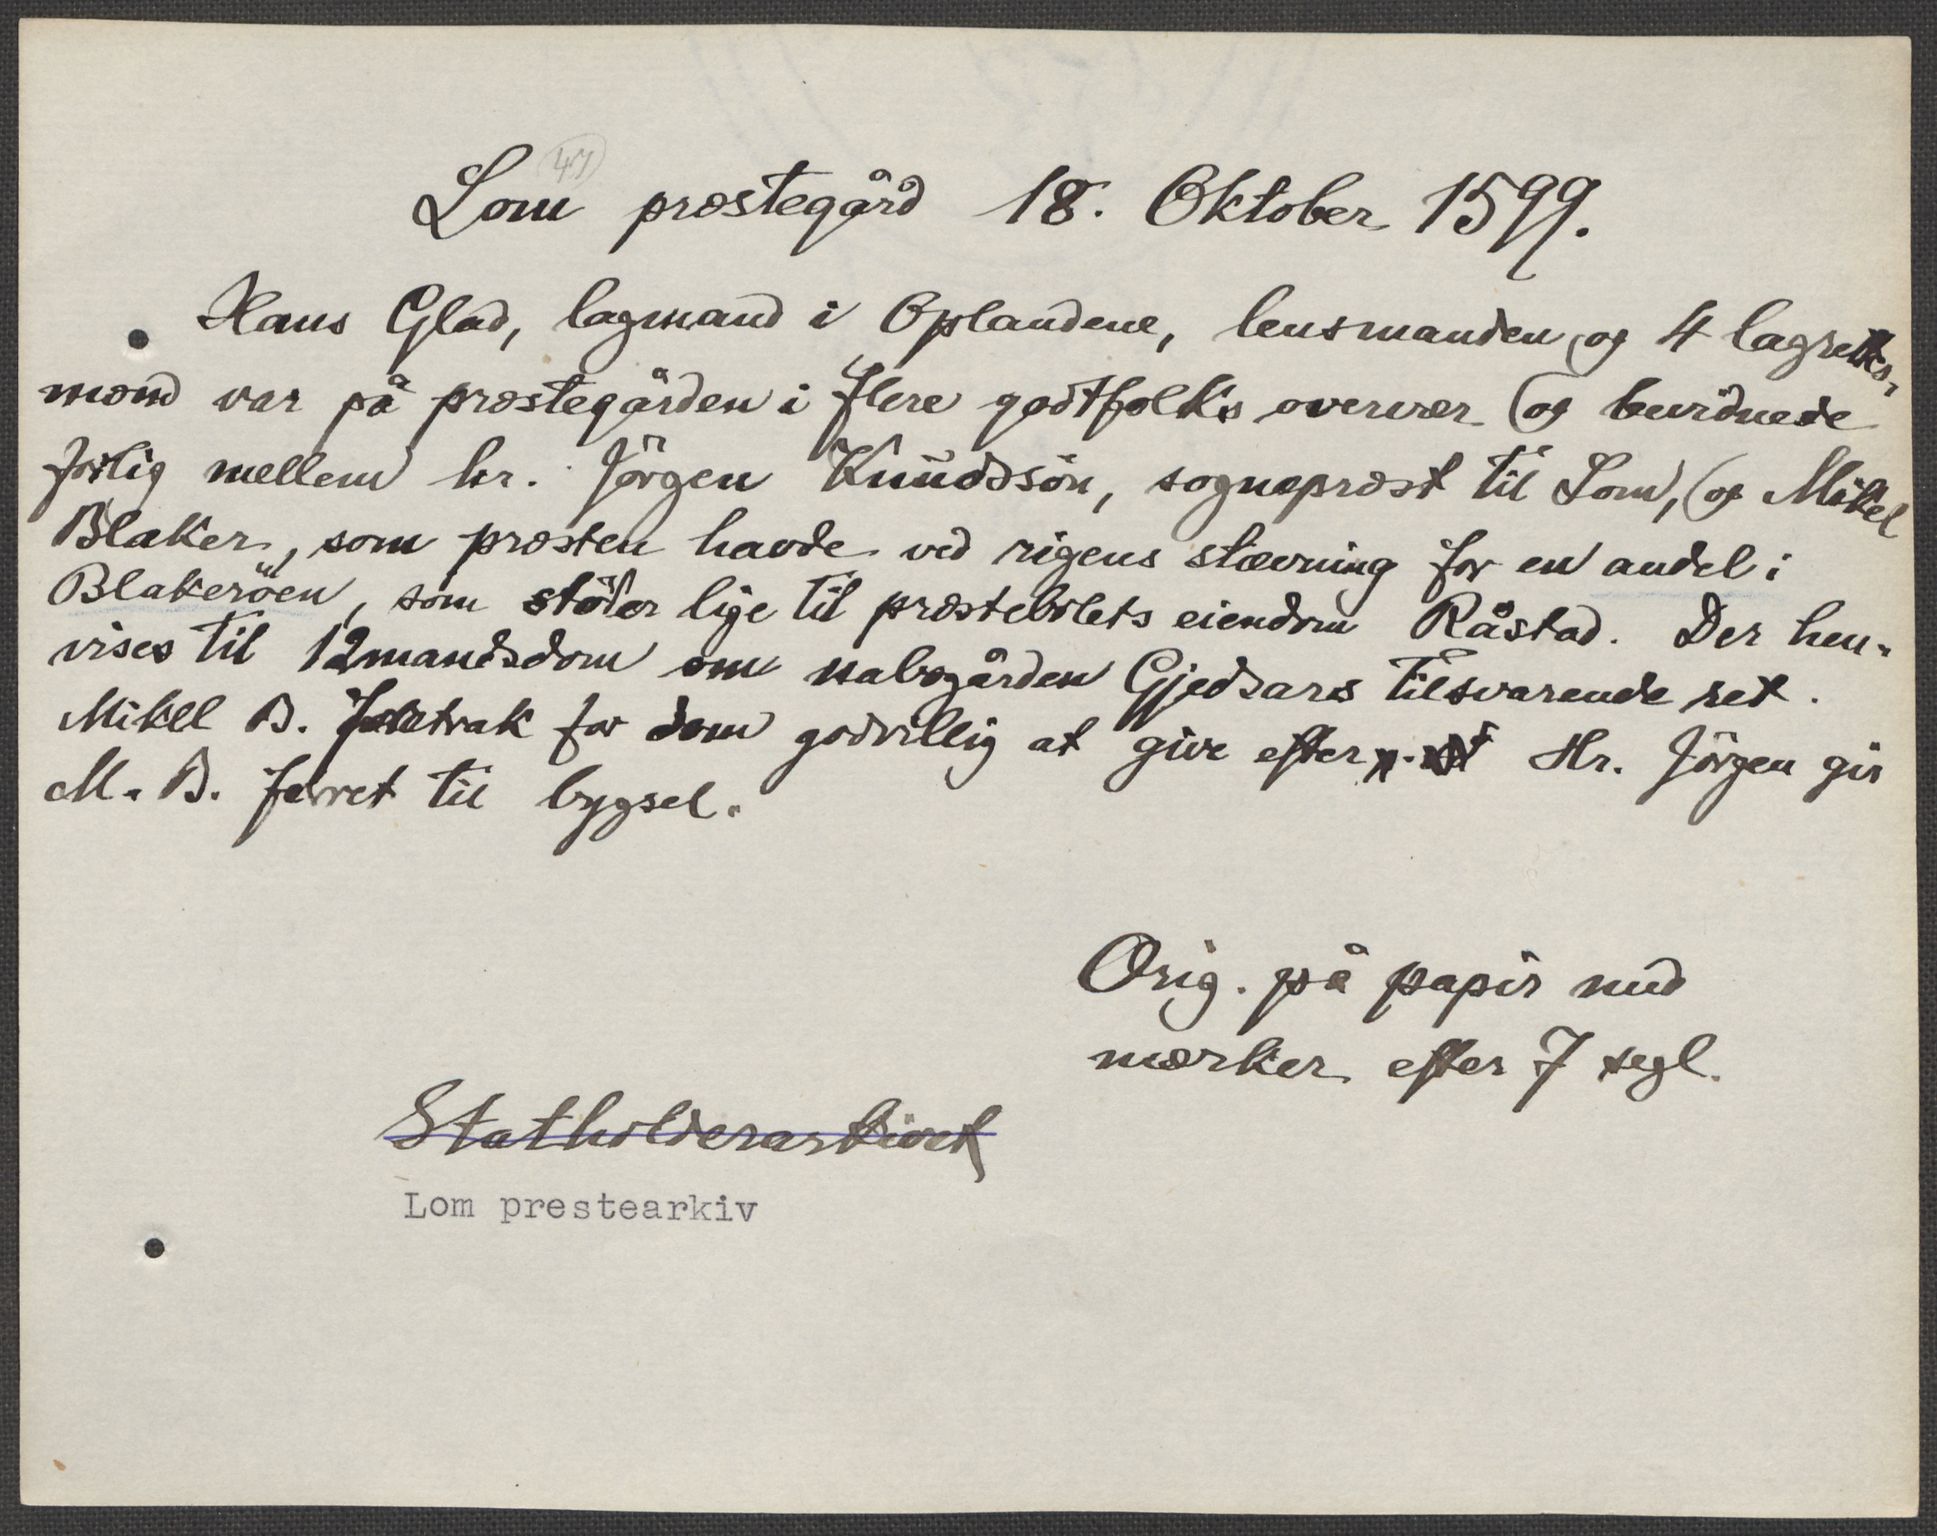 47
Lom præstegård 18. Oktober 1599.
Hans Glad, lagmand i Oplandene, lensmanden og 4 lagretts-
mænd var på præstegården i flere godtfolks overvær og bevidnede
forlig mellem hr. Jörgen Knudssön, sognepræst til Lom, og Mikel
Blaker, som præsten havde ved rigens stævning for en andel i
Blakeröen, som stöter lige til præstebolets eiendom Råstad. Der hen-
vises til 12mandsdom om nabogården Gjedsars tilsvarende ret.
Mikel B. foretrak for dom godvillig at give efter Hr. Jörgen gir
M. B. forret til bygsel.
Orig. på papir med
mærker efter 7 segl.
Statholderarkivet
Lom prestearkiv